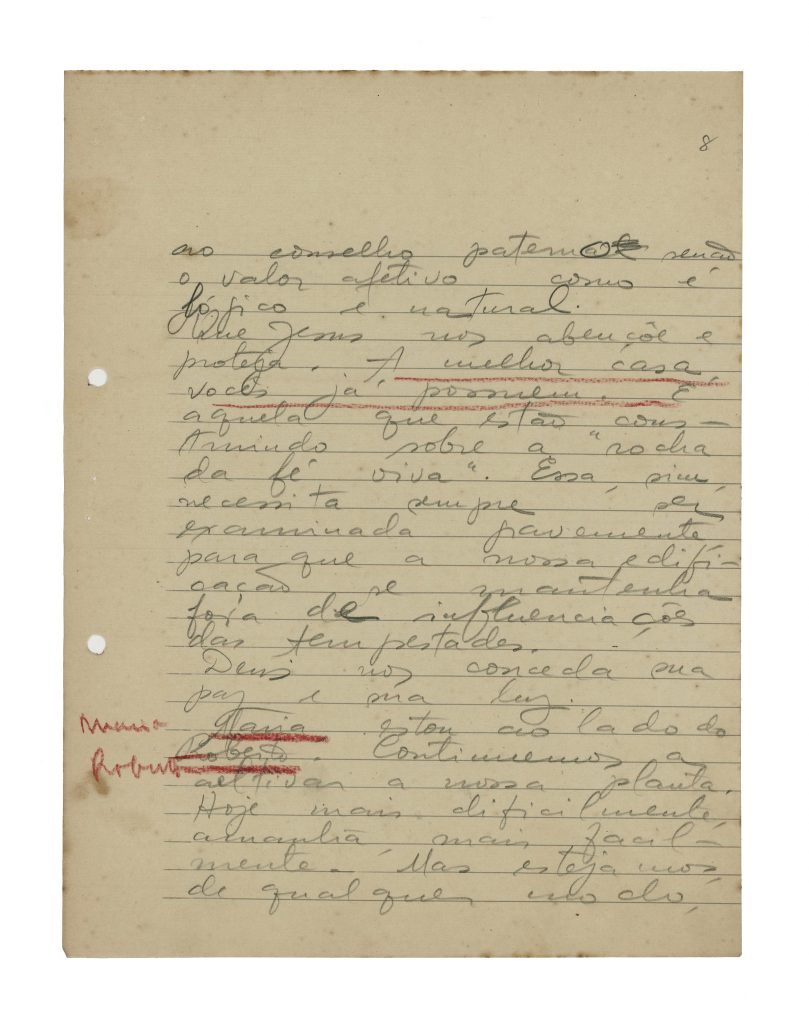 8
no conselho paternal senão
o valor afetivo como é
lógico e natural.
Que Jesus nos abençõe e
proteja. A melhor casa,
vocês já possuem. É
aquela que estão cons-
truindo sobre a "rocha
da fé viva". Essa, sim,
necessita sempre ser
examinada
para que a nossa edifi-
cação se mantenha
fora de influenciações
das tempestades.
Deus nos conceda sua
paz e sua luz.
Maria Maria, estou ao lado do
Roberto Roberto. Continuemos a
cultivar a nossa planta.
Hoje mais dificilmente,
amanhã, mais facil-
mente. Mas estejamos,
de qualquer modo,